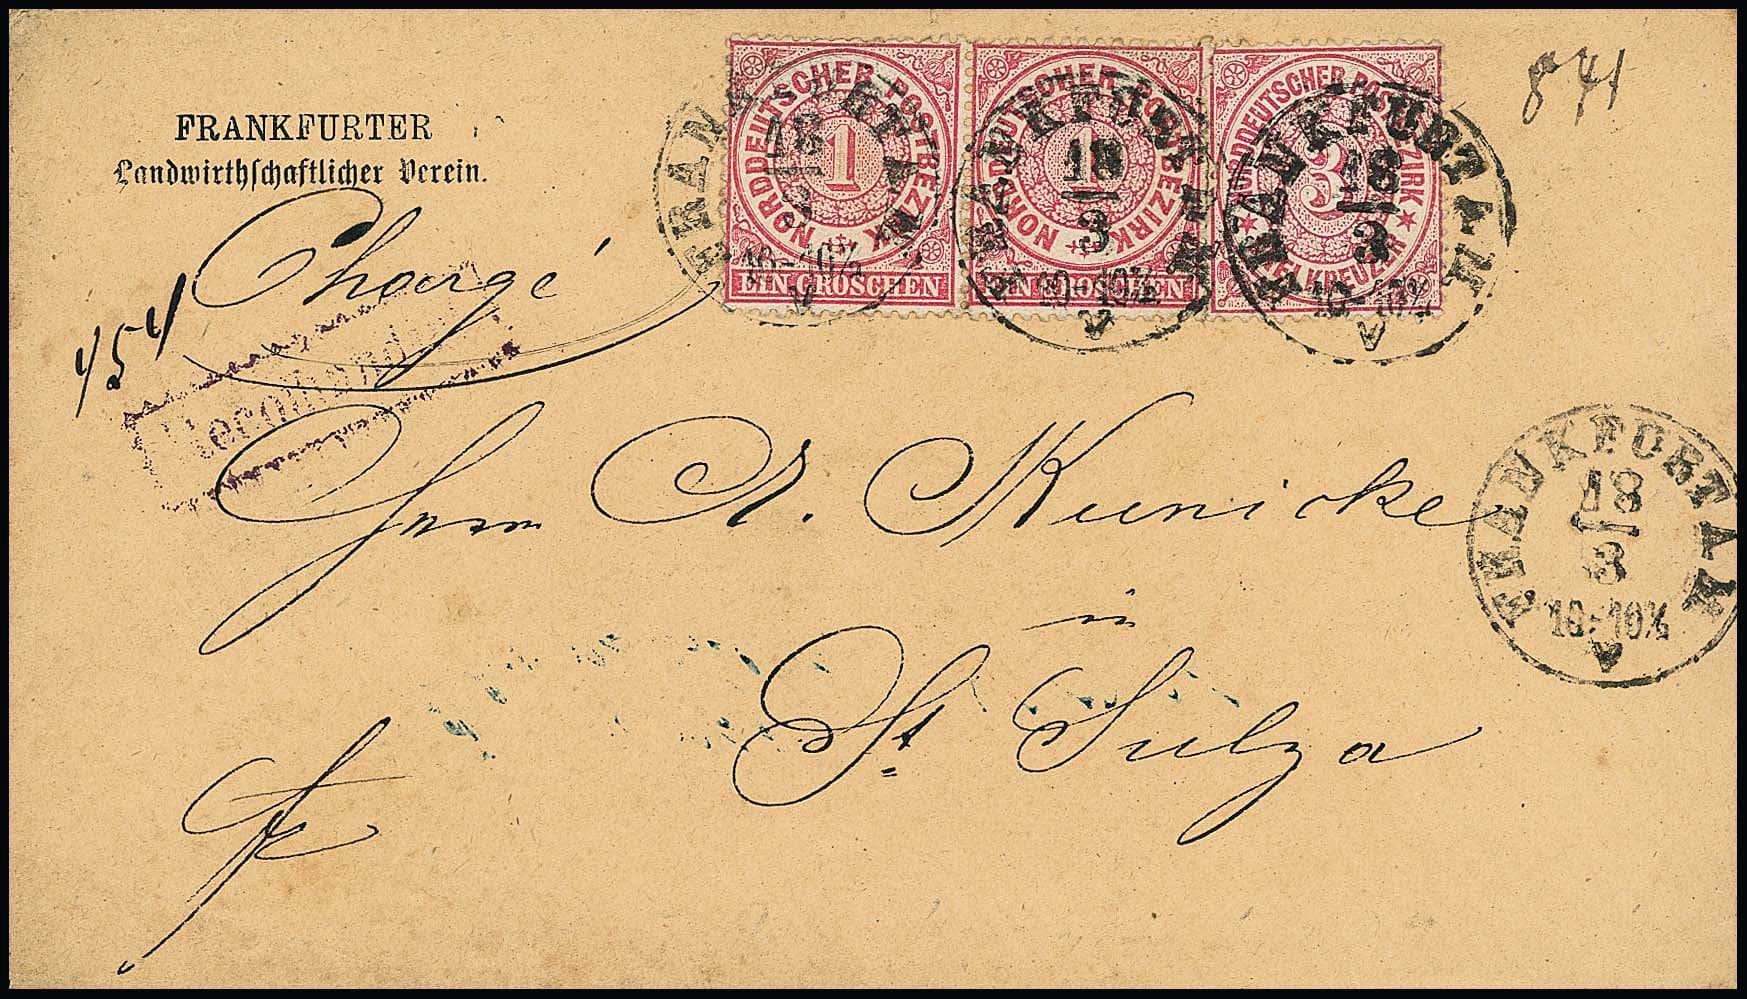 FRANKFURTER
Landwirthschaftlicher Verein.
NORDDEUTSCHER POSTBEZIRK
1
EIN GROSCHEN
NORDDEUTSCHER POSTBEZIRK
1
EIN GROSCHEN
NORDDEUTSCHER POSTBEZIRK
3
KREUZER
FRANKFURT A. M.
18
3
10-10½
V
FRANKFURT A. M.
18
3
10-10½
V
FRANKFURT A. M.
18
3
10-10½
V
841
Chargé
454
Recommandirt
Herrn A. Kunicke
FRANKFURT A. M.
18
3
10-10½
V
in
St Sulza